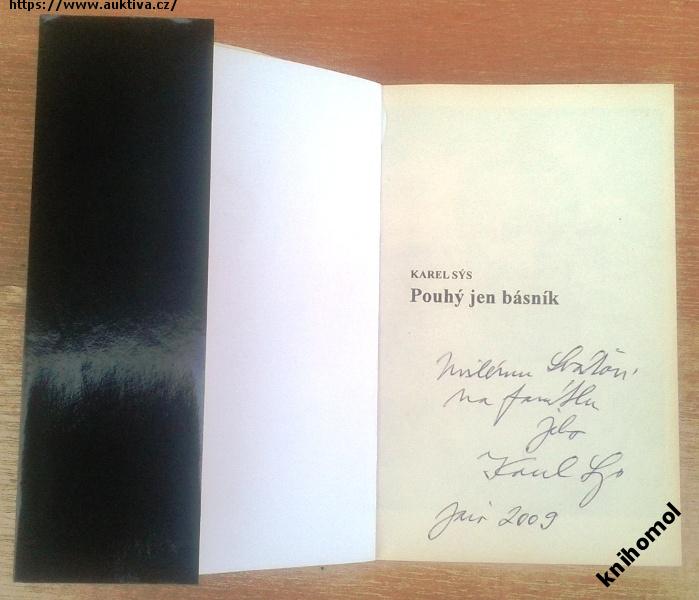 https://www.auktiva.cz/
KAREL SÝS
Pouhý jen básník
milému
na památku
jeho
Karel Sýs
Jaro 2009
knihomol